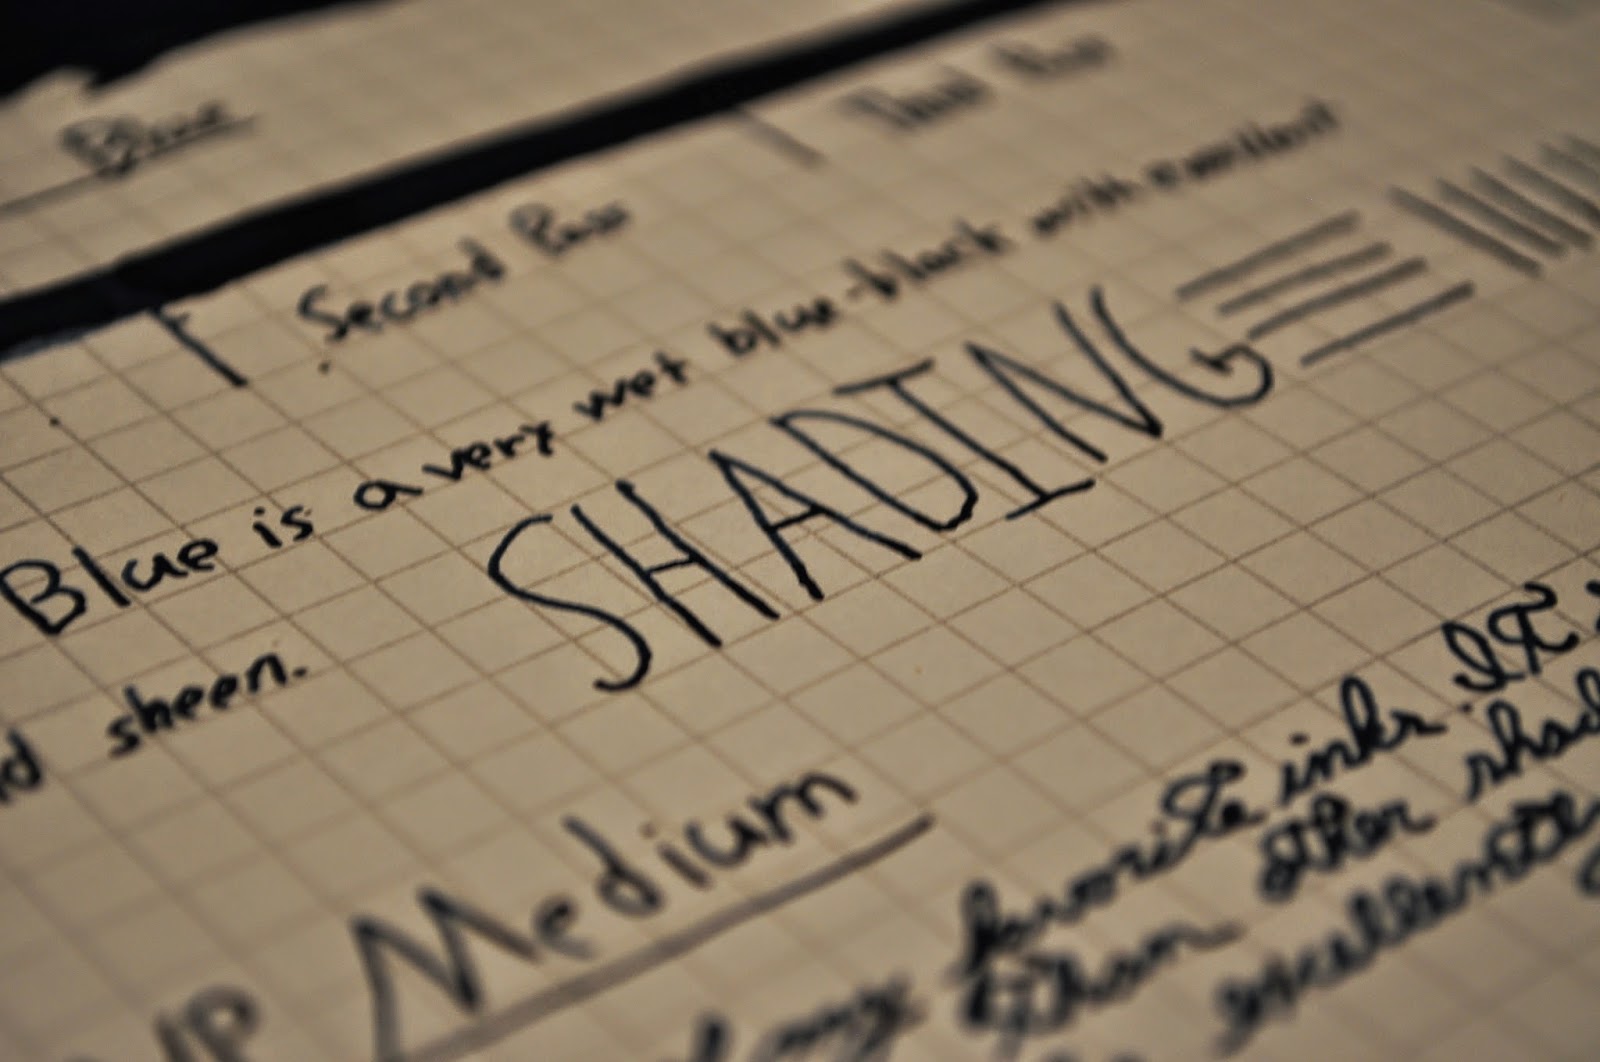 Blue
Second Pass Third Pass
Blue is a very wet blue-black with excellent
sheen. SHADING
Medium
favorite inks. It
than other
excellent